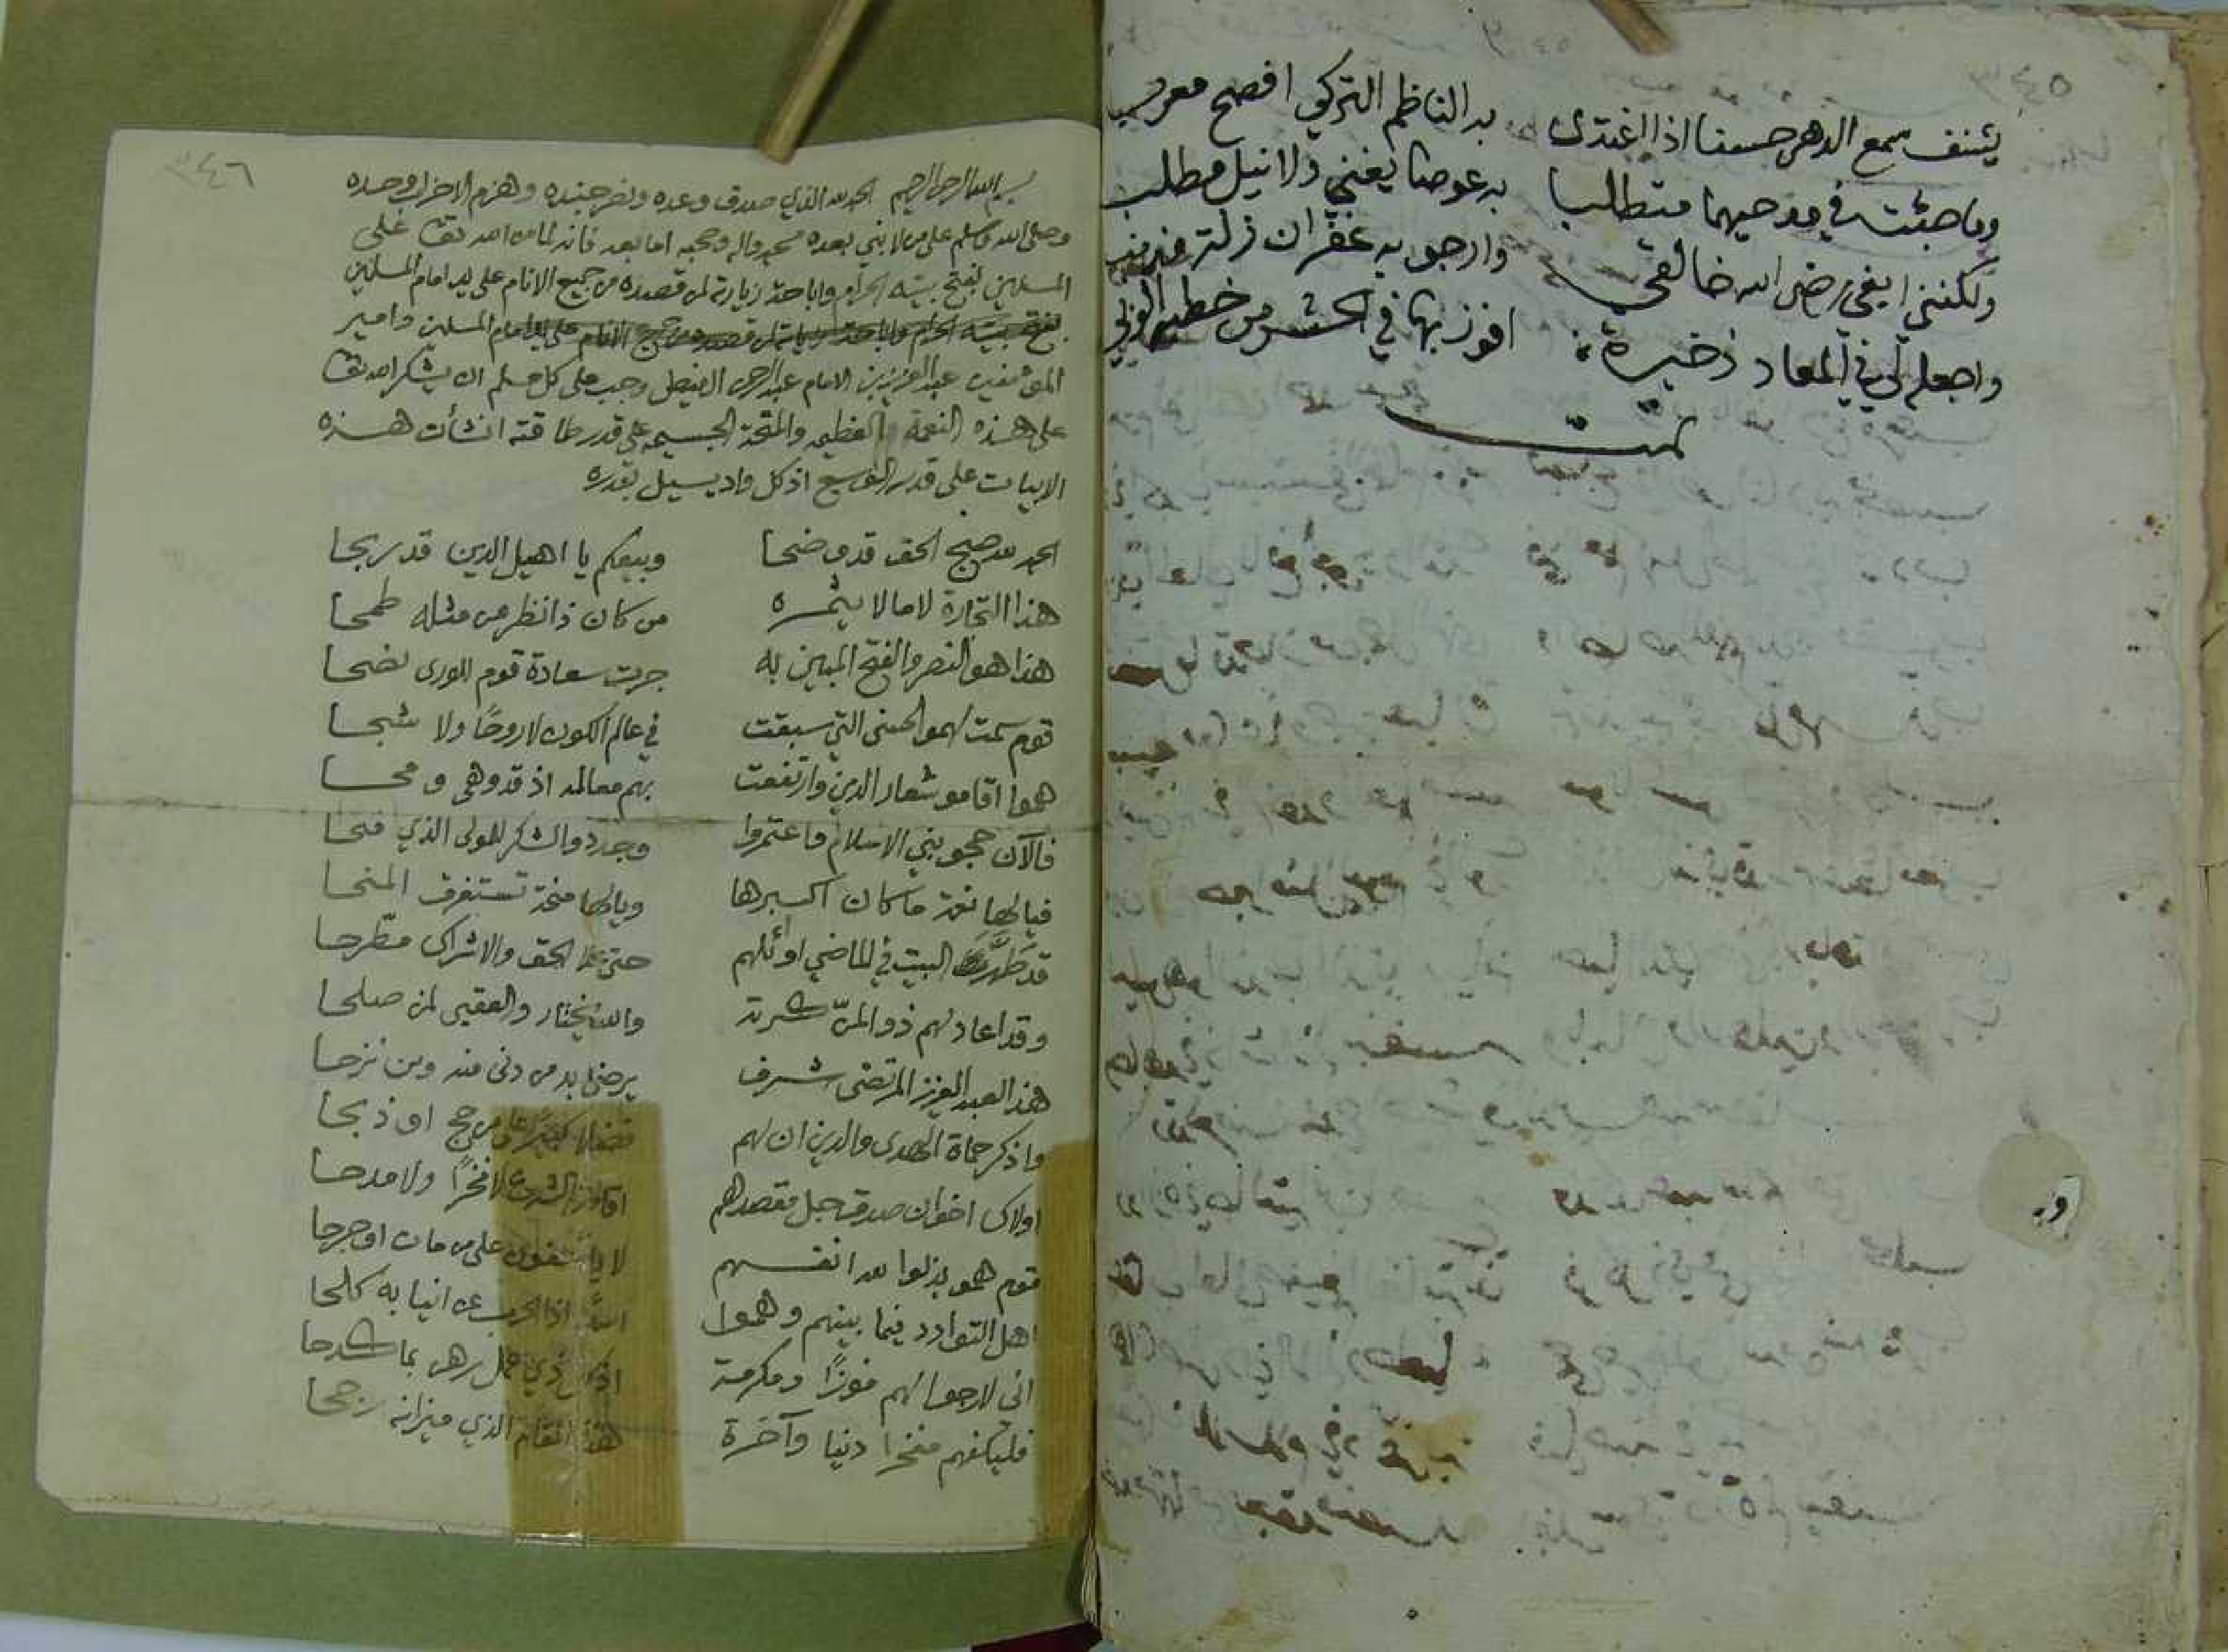 يشنف سمع الدهر حسنا اذا اغتدى به الناظم التركي افصح معرب
وما جئت في مدحيهما متطلبا به عوضا يغني ولا نيل مطلب
ولكنني ابغي رضى الله خالقي وارجو به غفران زلة مذنب
واجعله لي في المعاد ذخيرة افوز بها في الحشر من خطبه الوبي
تمت
٣٤٦
بسم الله الرحمن الرحيم الحمد لله الذي صدق وعده ونصر جنده وهزم الاحزاب وحده
وصلى الله وسلم على من لا نبي بعده محمد واله وصحبه اما بعد فانه لما من الله تعالى على
المسلمين بفتح بيته الحرام واباحة زيارته لمن قصده من جميع الانام على يد امام المسلمين
بفتح بيته الحرام واباحة زيارته لمن قصده من جميع الانام على يد امام المسلمين وامير
المؤمنين عبد العزيز بن الامام عبد الرحمن الفيصل وجب على كل مسلم ان يشكر الله تعالى
على هذه النعمة العظيمه والمنحة الجسيمه على قدر طاقته انشأت هذه
الابيات على قدر الوسع اذ كل واد يسيل بقدره
الحمد لله صبح الحق قد وضحا وبيعكم يا اهيل الدين قد ربحا
هذا التجارة لا مال لا يثمره من كان ذا نظر من مثله طمحا
هذا هو النصر والفتح المبين به جرت سعادة قوم للورى نصحا
قوم سمت لهمو الحسنى التي سبقت في عالم الكون لا روحًا ولا شبحا
همو اقامو شعار الدين وارتفعت بهم معالمه اذ قد وهى ومحا
فالآن حجو بني الاسلام واعتمروا وجددو الشكر للمولى الذي فتحا
فيالها نعمة ما كان اكبرها ويالها منحة تستغرق المنحا
قد طهرت البيت في الماضي اوائلهم حتى علا الحق والاشراك مطّرحا
وقد اعاد لهم ذو المنّ كرته والله يختار والعقبى لمن صلحا
هذا لعبد العزيز المرتضى شرف يرضى به من دنى منه ومن نزحا
واذكر حماة الهدى والدين ان لهم فضلا كبيرًا على من حج او ذبحا
اولاك اخوان صدق جل مقصدهم اقامة الشرع لا فخرًا ولا مدحا
قوم همو بذلوا لله انفسهم لا يأسفون على من مات او جرحا
اهل التوادد فيما بينهم وهموا اسد اذا الحرب عن انيابه كلحا
اني لارجو لهم فوزًا ومكرمة اذ كل ذي عمل رهن بما كدحا
فليكفهم مفخرا دنيا وآخرة هذا المقام الذي ميزانه رجحا